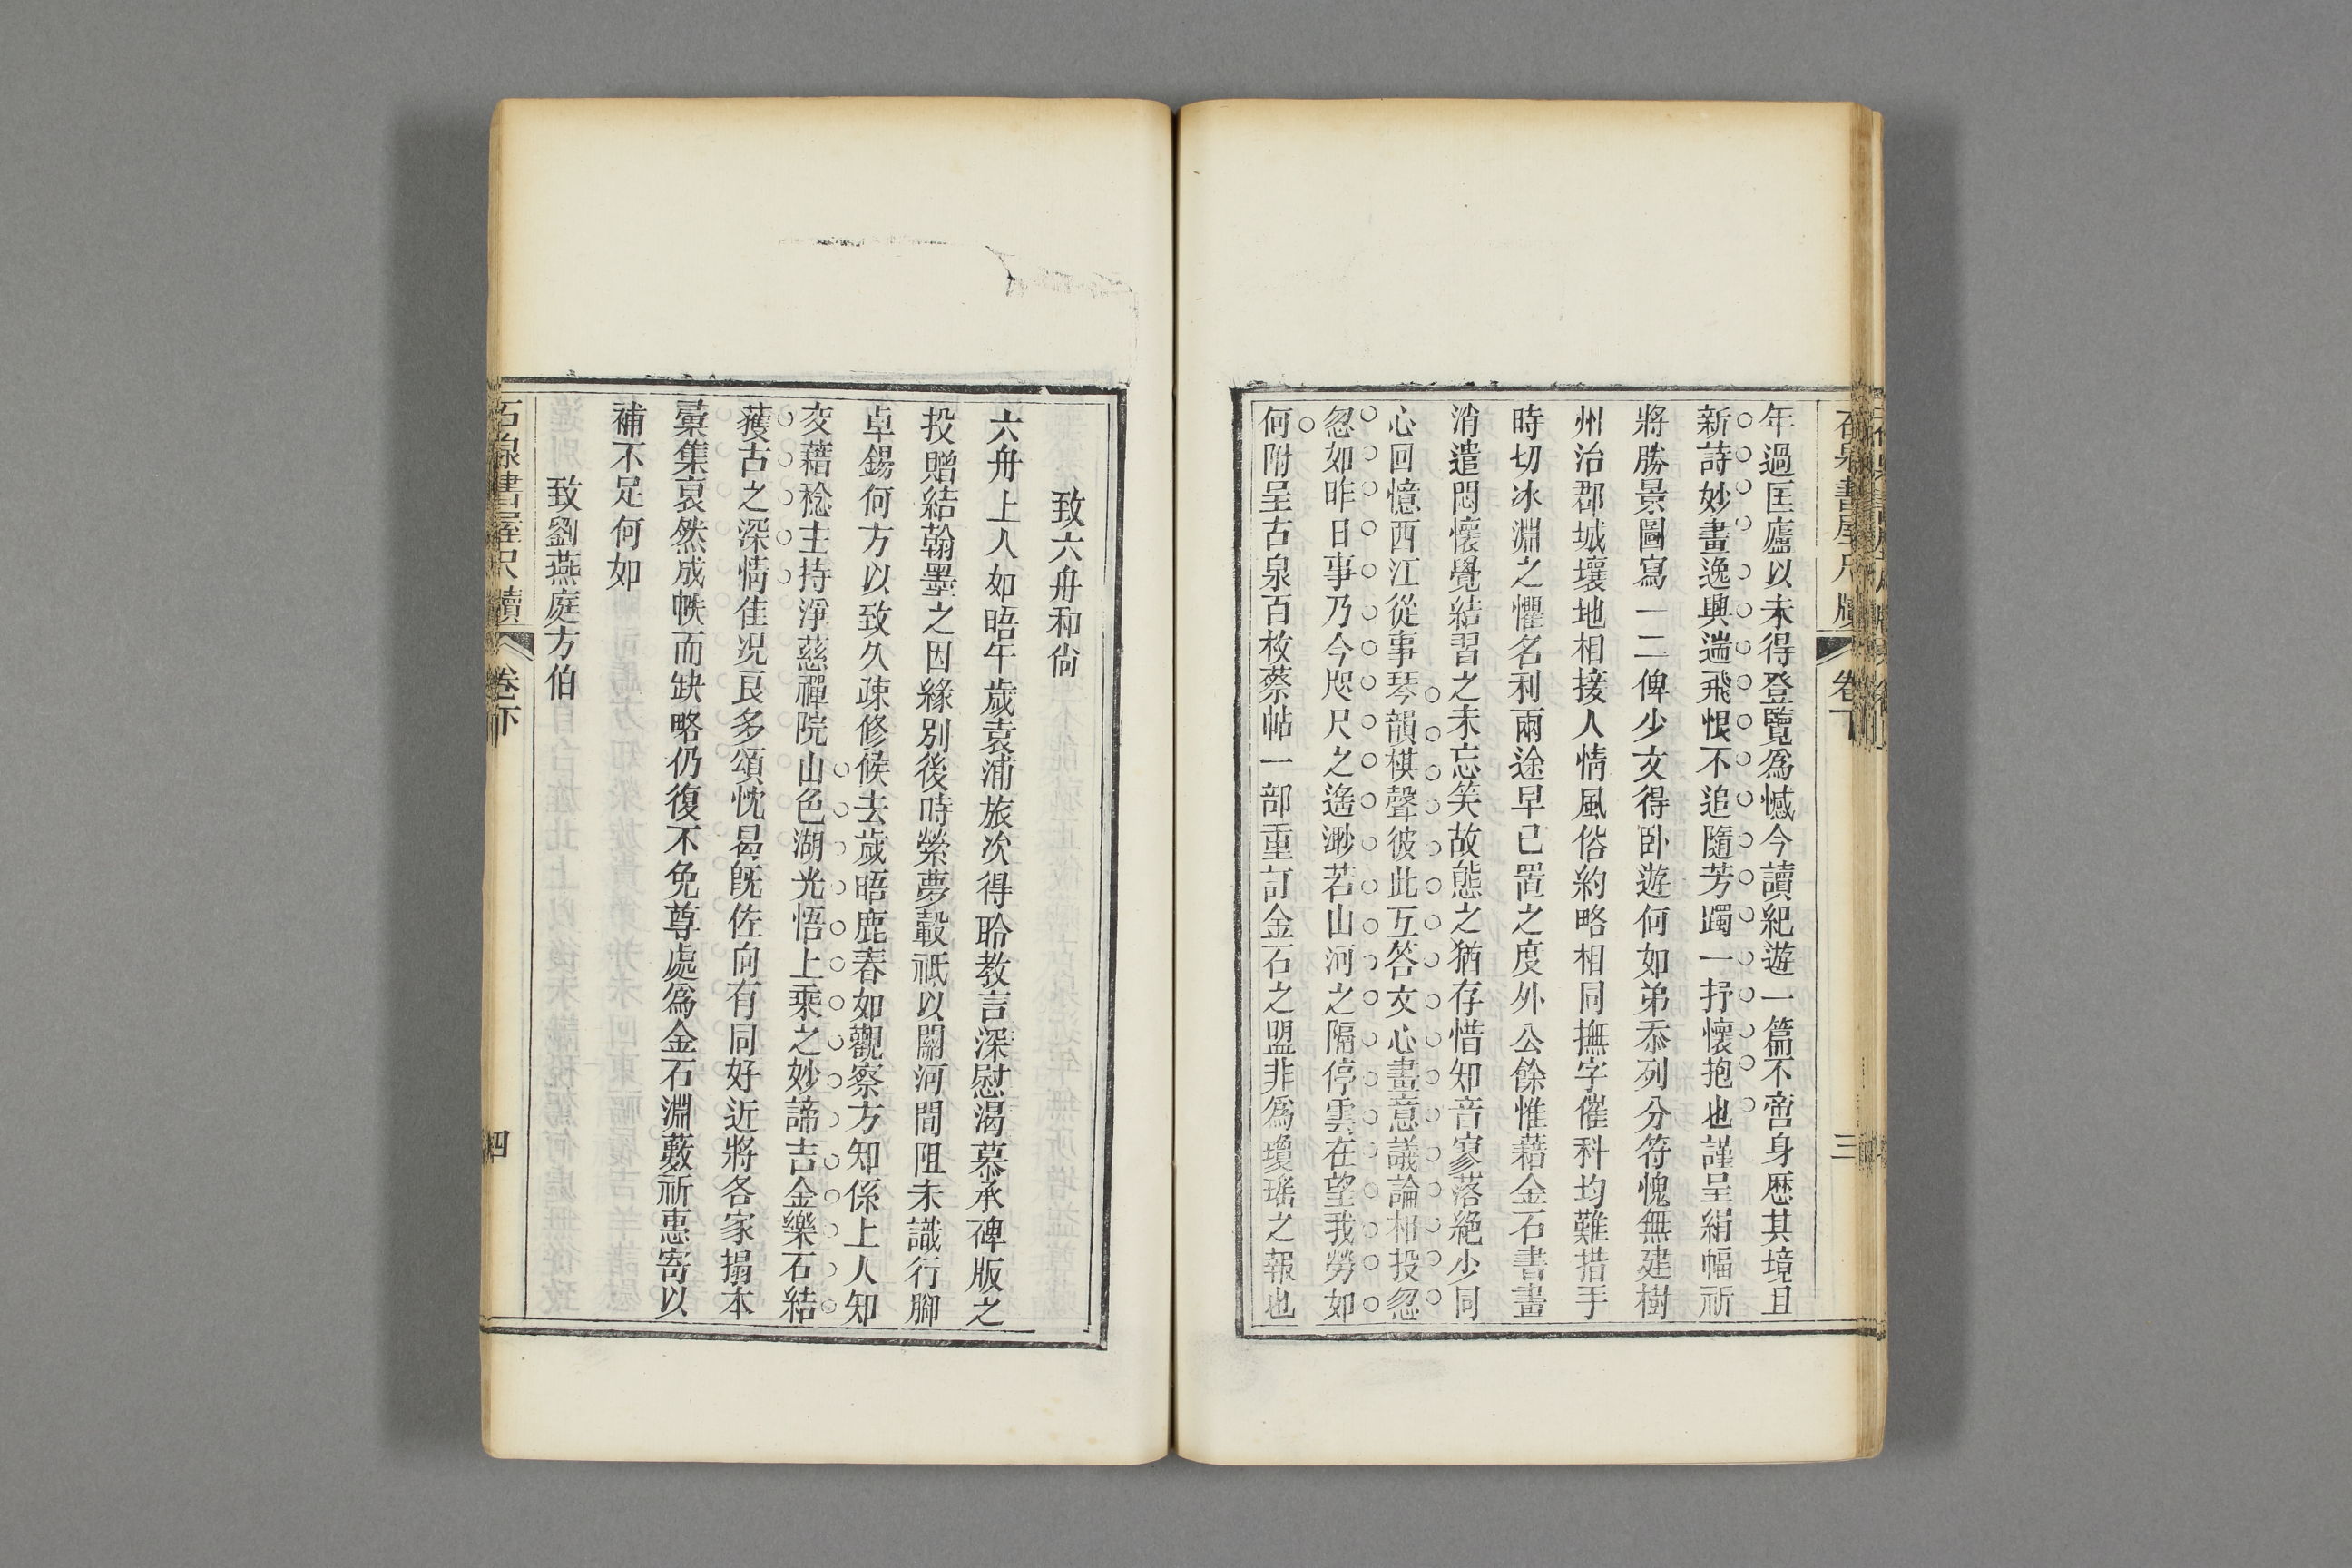 石泉書屋尺牘 卷下 三
年過匡廬以未得登覽爲憾今讀紀遊一篇不啻身歷其境且
新詩妙畫逸興遄飛恨不追隨芳躅一抒懷抱也謹呈絹幅祈
將勝景圖寫一二俾少文得臥遊何如弟忝列分符愧無建樹
州治郡城壤地相接人情風俗約略相同撫字催科均難措手
時切冰淵之懼名利兩途早已置之度外公餘惟藉金石書畫
消遣悶懷覺結習之未忘笑故態之猶存惜知音寥落絕少同
心回憶西江從事琴韻棋聲彼此互答文心畫意議論相投忽
忽如昨日事乃今咫尺之遙渺若山河之隔停雲在望我勞如
何附呈古泉百枚蔡帖一部重訂金石之盟非爲瓊瑤之報也
致六舟和尙
六舟上人如晤午歲袁浦旅次得聆教言深慰渴慕承碑版之
投贈結翰墨之因緣別後時縈夢轂祇以關河間阻未識行腳
卓錫何方以致久疎修候去歲晤鹿春如觀察方知係上人知
交藉稔主持淨慈禪院山色湖光悟上乘之妙諦吉金樂石結
獲古之深情佳況良多頌忱曷旣佐向有同好近將各家搨本
彙集裒然成帙而缺略仍復不免尊處爲金石淵藪祈惠寄以
補不足何如
致劉燕庭方伯
石泉書屋尺牘 卷下 四